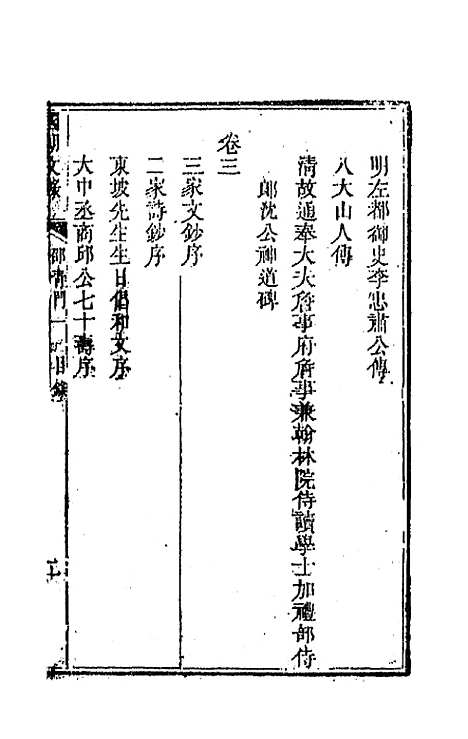 明左都御史李忠肅公傳
八大山人傳
清故通奉大夫詹事府詹事兼翰林院侍讀學士加禮部侍
郎沈公神道碑
卷三
三家文鈔序
二家詩鈔序
東坡先生生日倡和文序
大中丞商邱公七十壽序
國朝文錄 邵青門 目錄